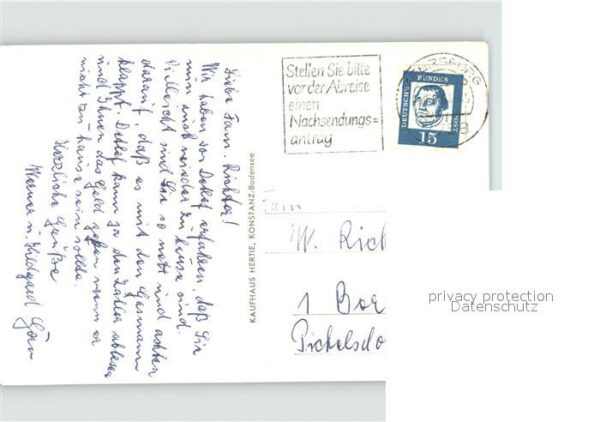 Liebe Fam. Richter!
Wir haben von Detlef erfahren, daß Sie
nun auch wieder zu Hause sind.
Vielleicht sind Sie so nett und achten
darauf, daß es mit dem Gasmann
klappt. Detlef kann ja den Zähler ablesen
und Ihnen das Geld geben wenn er
nicht zu-hause sein sollte.
Herzliche Grüße
Werner u. Hildegard
KAUFHAUS HERTIE, KONSTANZ/Bodensee
Stellen Sie bitte
vor der Abreise
einen
Nachsendungs=
antrag
DEUTSCHE
BUNDES
POST
15
Fam
W. Rich
1 Ber
Pichelsdo
privacy protection
Datenschutz